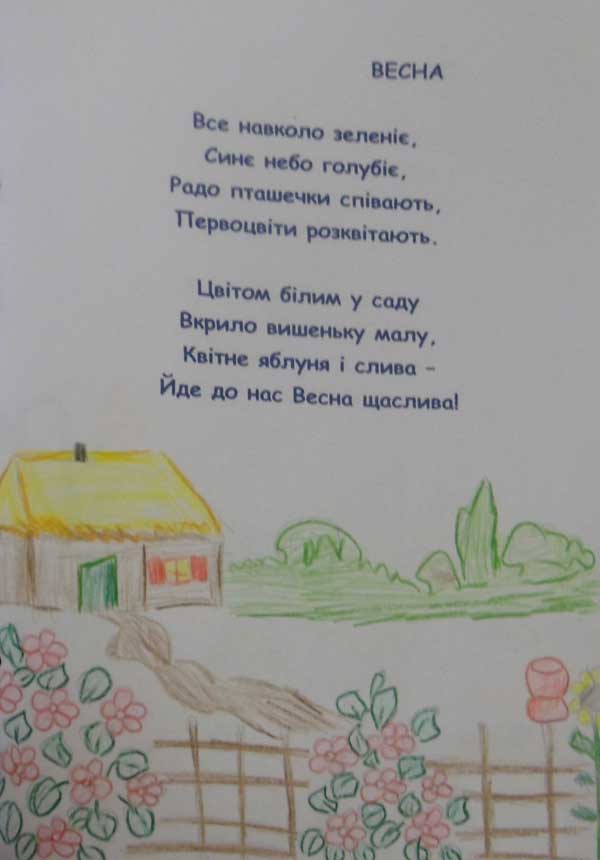 ВЕСНА
Все навколо зеленіє,
Синє небо голубіє,
Радо пташечки співають,
Первоцвіти розквітають.
Цвітом білим у саду
Вкрило вишеньку малу,
Квітне яблуня і слива –
Йде до нас Весна щаслива!